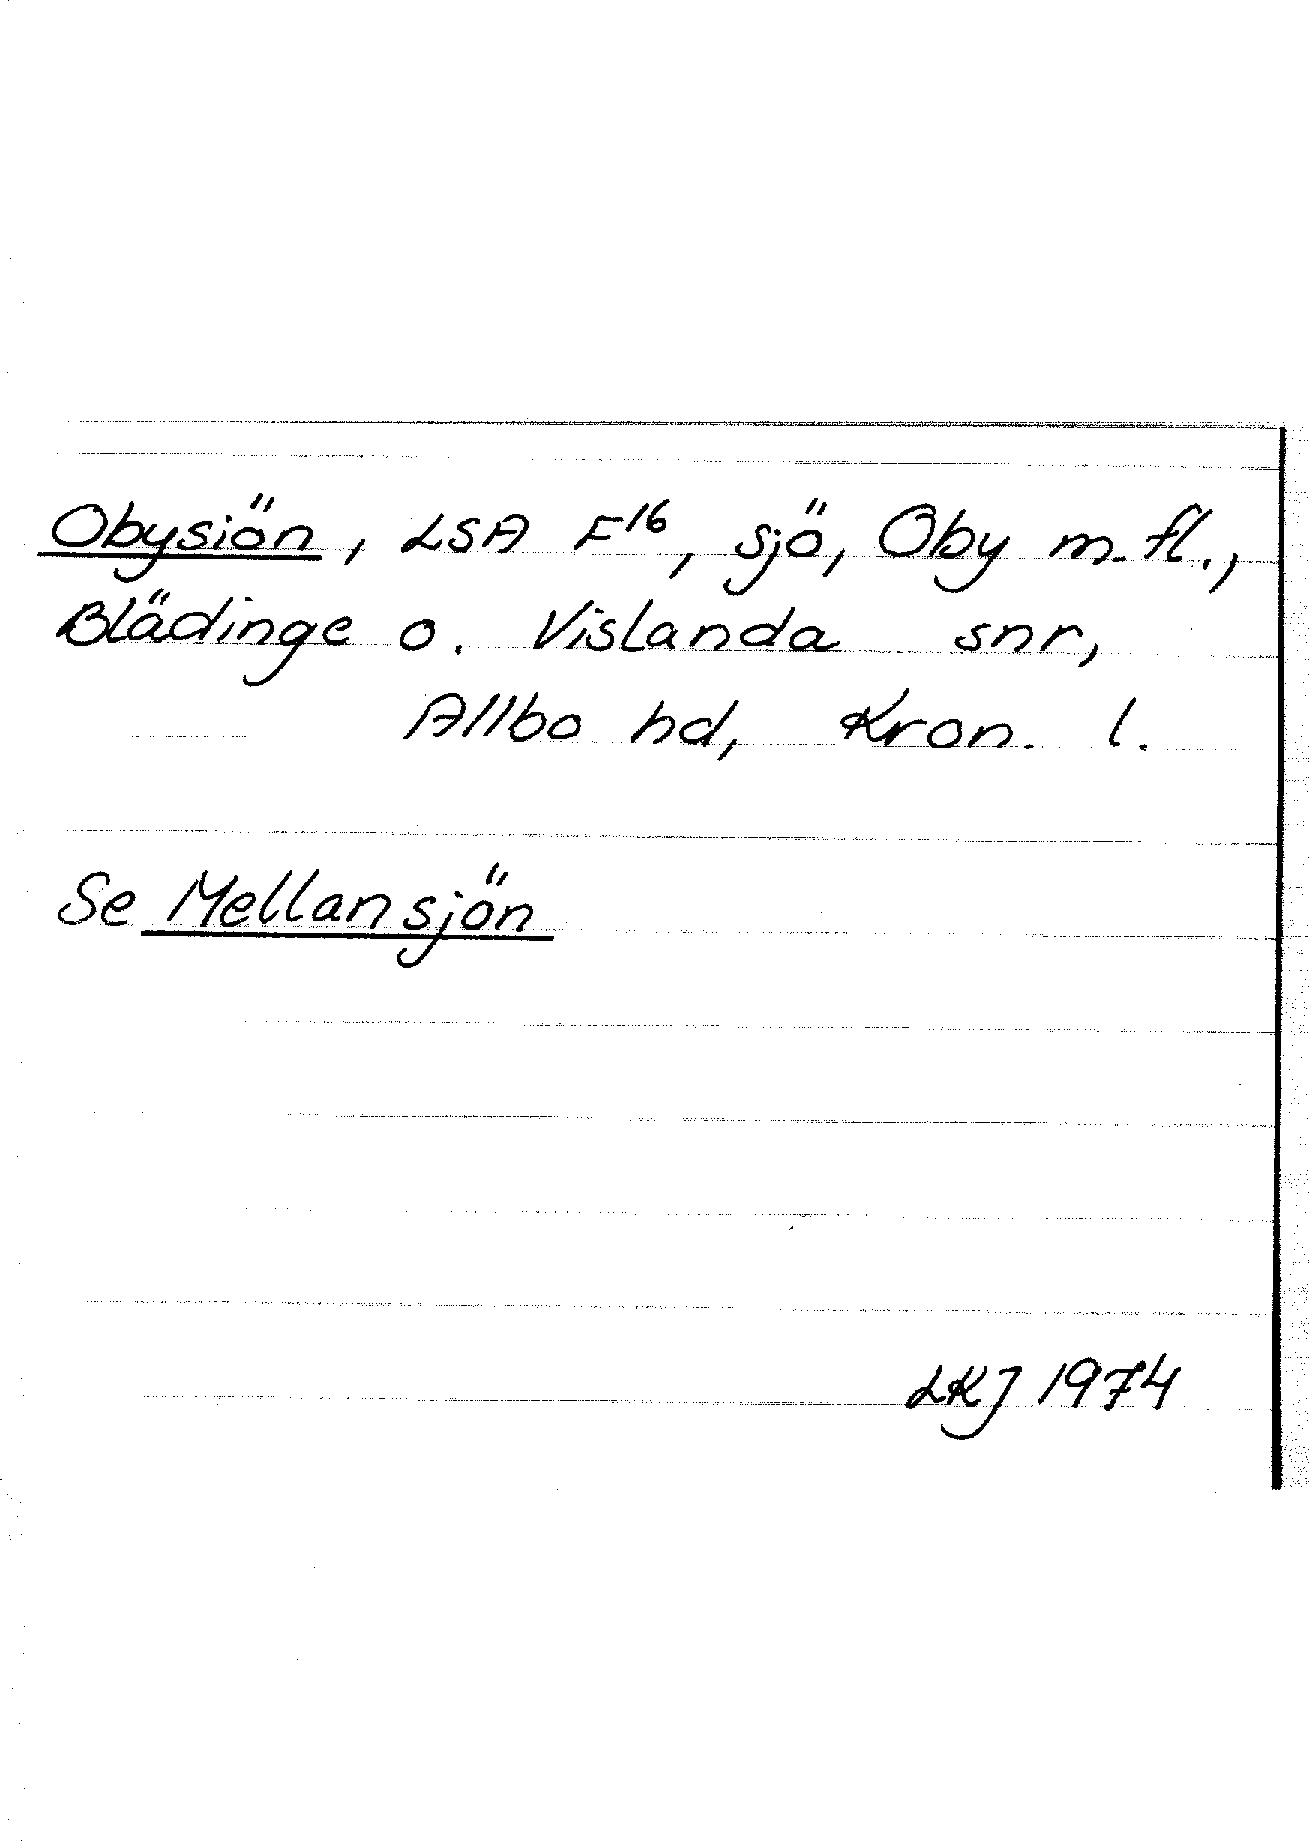 Obysiön, LSA F16, sjö, Oby m. fl.,
Blädinge o. Vislanda snr,
Allbo hd, Kron. l.
Se Mellansjön
LKJ 1974